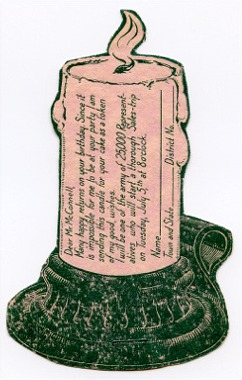 Dear Mr. McConnell
Many happy returns on your birthday. Since it
is impossible for me to be at your party I am
sending this candle for your cake as a token
of my good wishes.
I will be one of the army of 25000 Represent-
atives who will start a thorough Sales-trip
on Tuesday, July 5th at 8 oclock.
Name
Town and State District No.